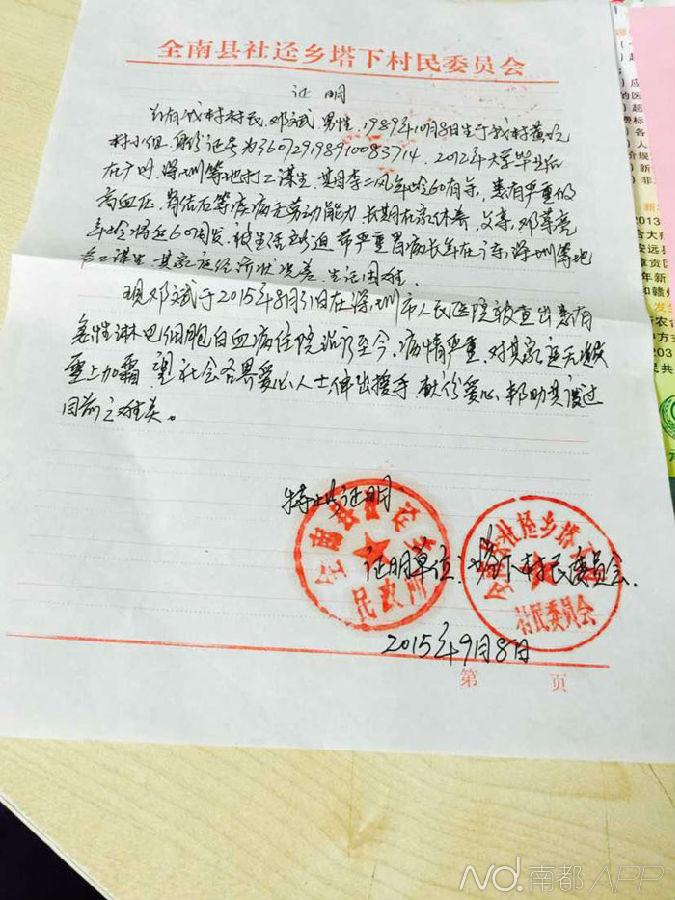 全南县社迳乡塔下村民委员会
证明
兹有我村村民,邓斌,男性,1989年10月8日生于我村黄坑
村小组,身份证号为360729198910083714,2012年大学毕业后
在广州、深圳等地打工谋生,其母李二凤年龄60有余,患有严重的
高血压,肾结石等疾病无劳动能力,长期在家休养,父亲,邓尊亮
年龄将近60周岁,被生活所迫带严重胃病长年在广东,深圳等地
打工谋生,其家庭经济状况差、生活困难。
现邓斌于2015年8月31日在深圳市人民医院被查出患有
急性淋巴细胞白血病住院治疗至今,病情严重,对其家庭无疑
雪上加霜,望社会各界爱心人士,伸出援手,献份爱心,帮助其渡过
目前之难关。
特此证明
证明单位:塔下村民委员会
2015年9月8日
第 页
全南县 社
民政所
社迳乡塔下
村民委员会
2013
和赣州
203
南都APP